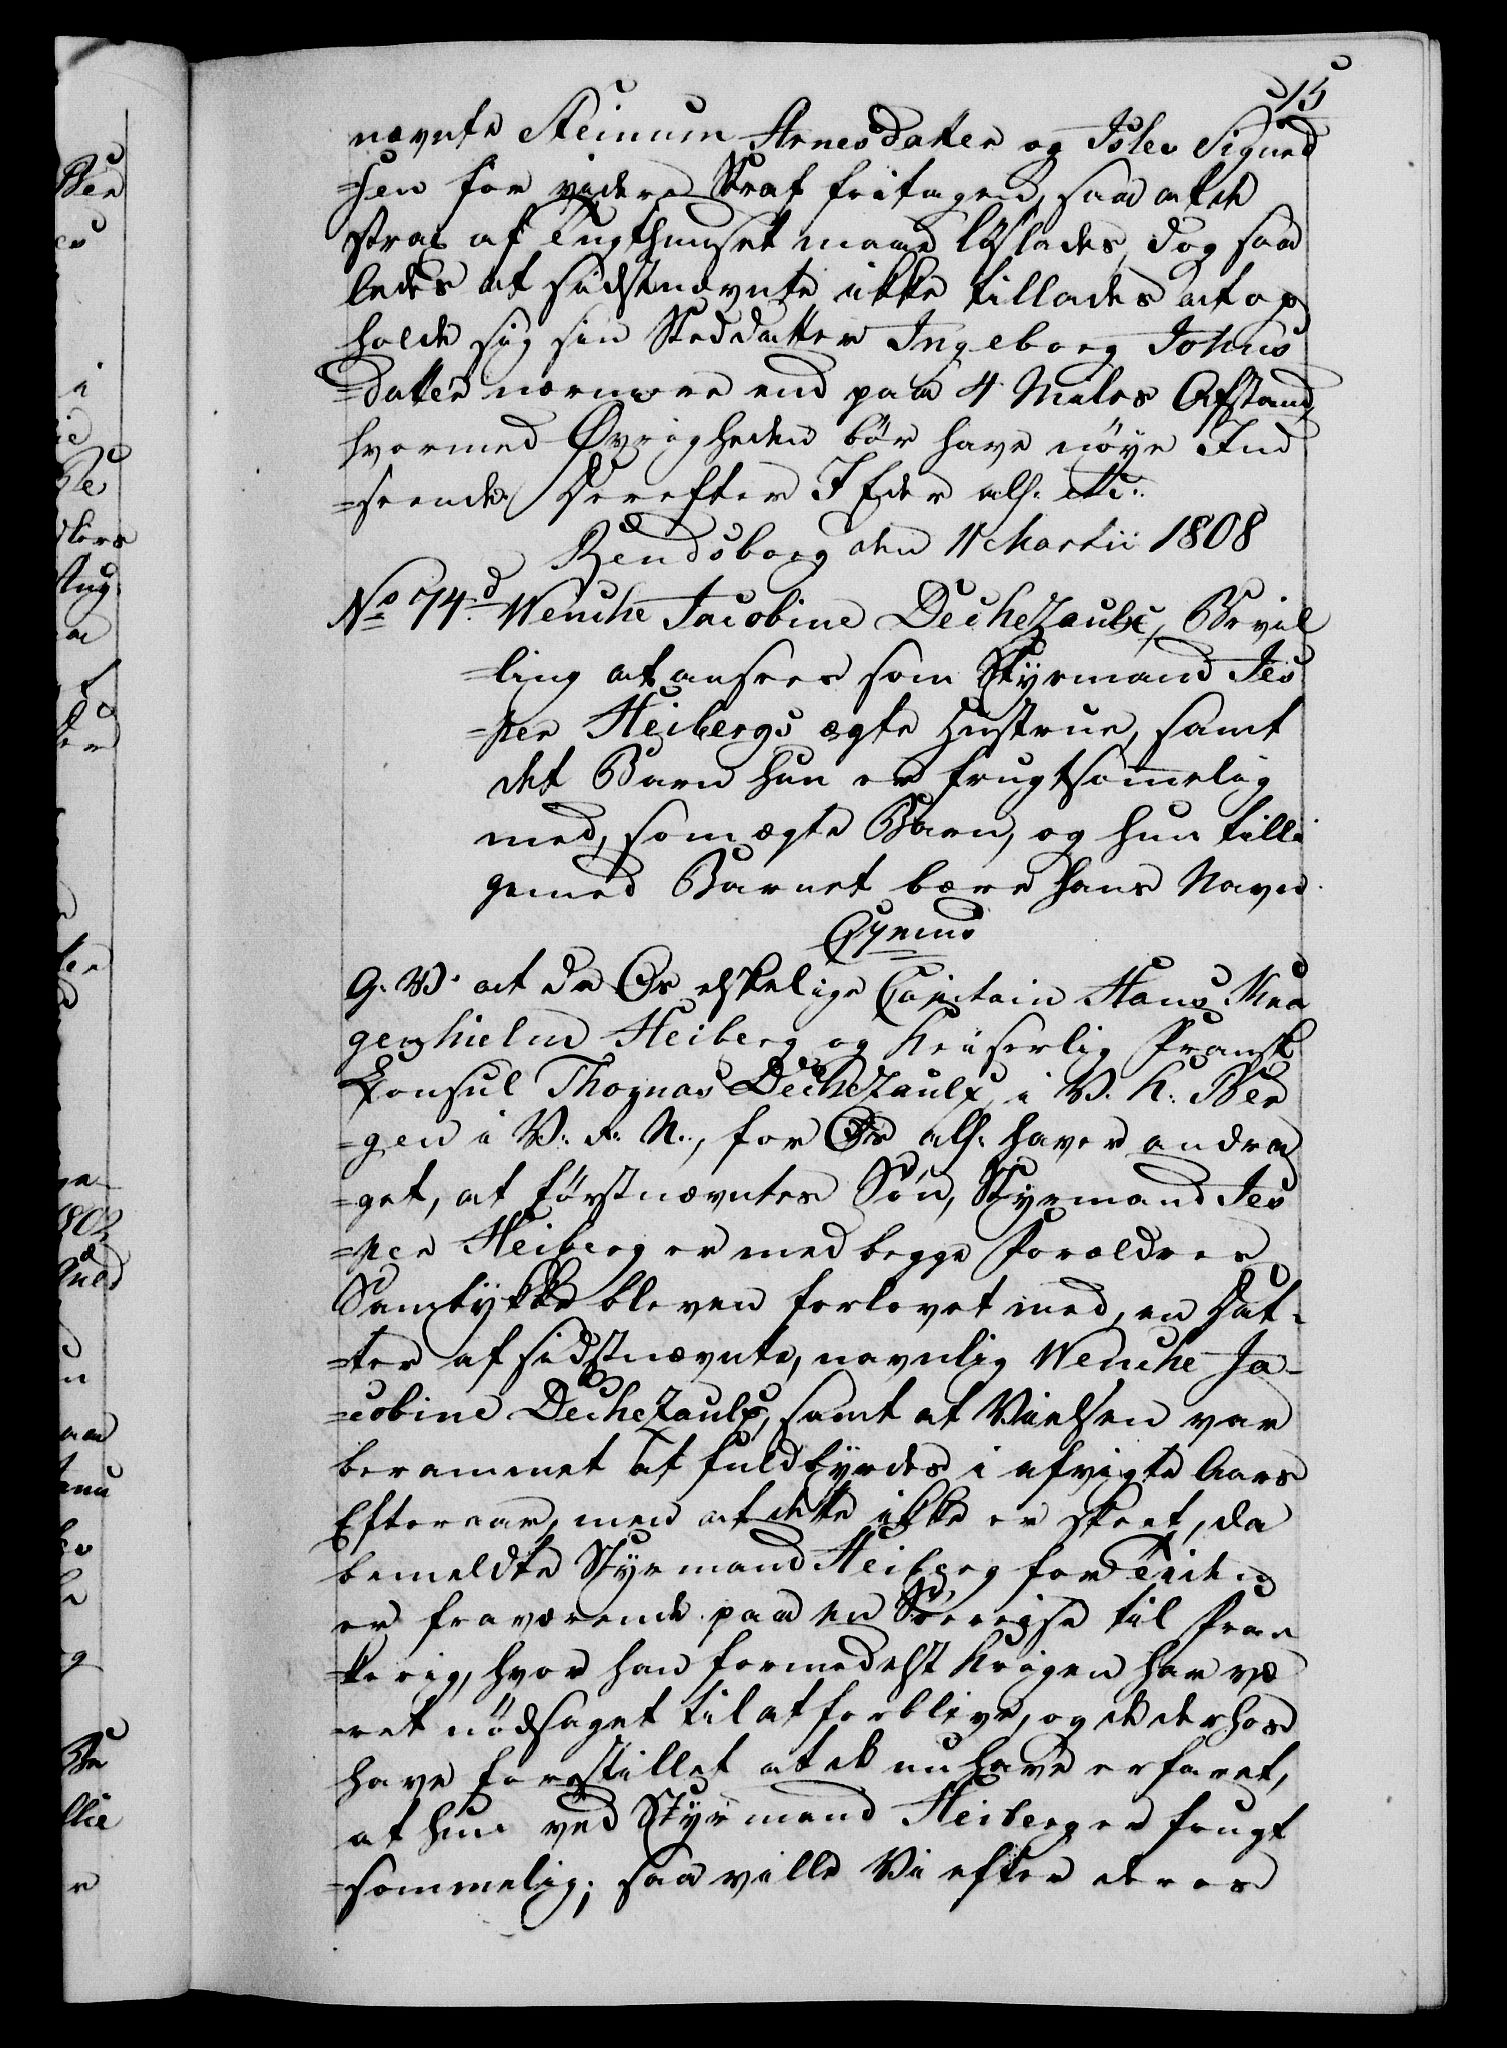 15
nævnte Steinum Arnesdatter og Isleo Sigurd
=sen for videre Straf fritagen, saa at de
strax af Tugthuuset maae løslades, dog saa
ledes at sidstnævnte ikke tillades at op
holde sig sin Steddatter Ingeborg Johns
=datter nærmere end paa 4 Miles Afstand,
hvormed Øvrigheden bør have nøye Ind
=seende. Derefter I Eder alh. etc.
Rendsborg den 11 Martii 1808
No 74.d Wenche Jacobine DecheZaulx, Bevil
=ling at ansees som Styrmand Jes
=per Heibergs ægte Hustrue, samt
det Barn hun er frugtsommelig
med, som ægte Barn, og hun tilli
gemed Barnet bære hans Navn.
G. V. at da Os elskelige Capitain Hans Kra
genhielm Heiberg og Keiserlig Fransk
Consul Thomas DecheZaulx i V. K. Ber
=gen i V. R. N., for Os alh. haver andra
=get, at førstnævntes Søn, Styrmand Jes
=per Heiberg er med begge Forældres
Samtykke bleven forlovet med, en Dat-
=ter af sidstnævnte, navnlig Wenche Ja-
=cobine DecheZaulx, samt at Vielsen var
berammet at fuldbyrdes i afvigte Aars
Efteraar, men at dette ikke er skeet, da
bemeldte Styrmand Heiberg for Tiden
er fraværende paa en Søereise til Fran
=kerig, hvor han formedelst Krigen har væ
=ret nødsaget til at forblive, og de derhos
have forestillet at de nu have erfaret,
at hun ved Styrmand Heiberg er frugt
=sommelig; saa ville Vi efter deres